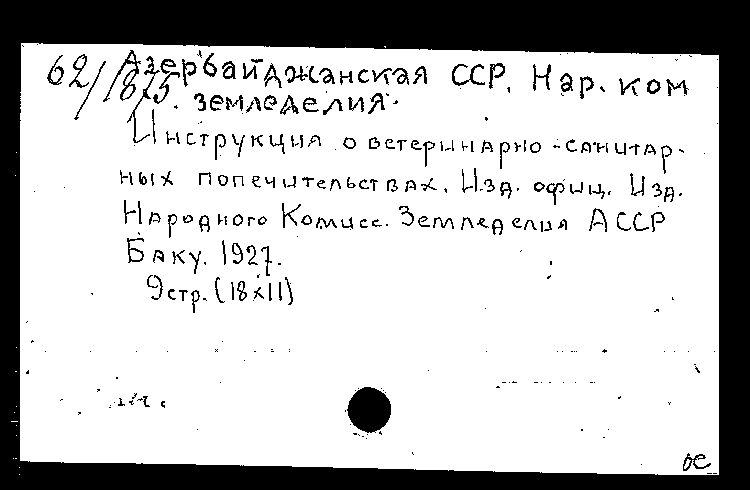 62/1875
Азербайджанская ССР. Нар. ком
земледелия.
Инструкция о ветеринарно-санитар-
ных попечительствах. Изд. офиц. Изд.
Народного Комисс. Земледелия АССР
Баку. 1927.
9 стр. (18х11)
ос